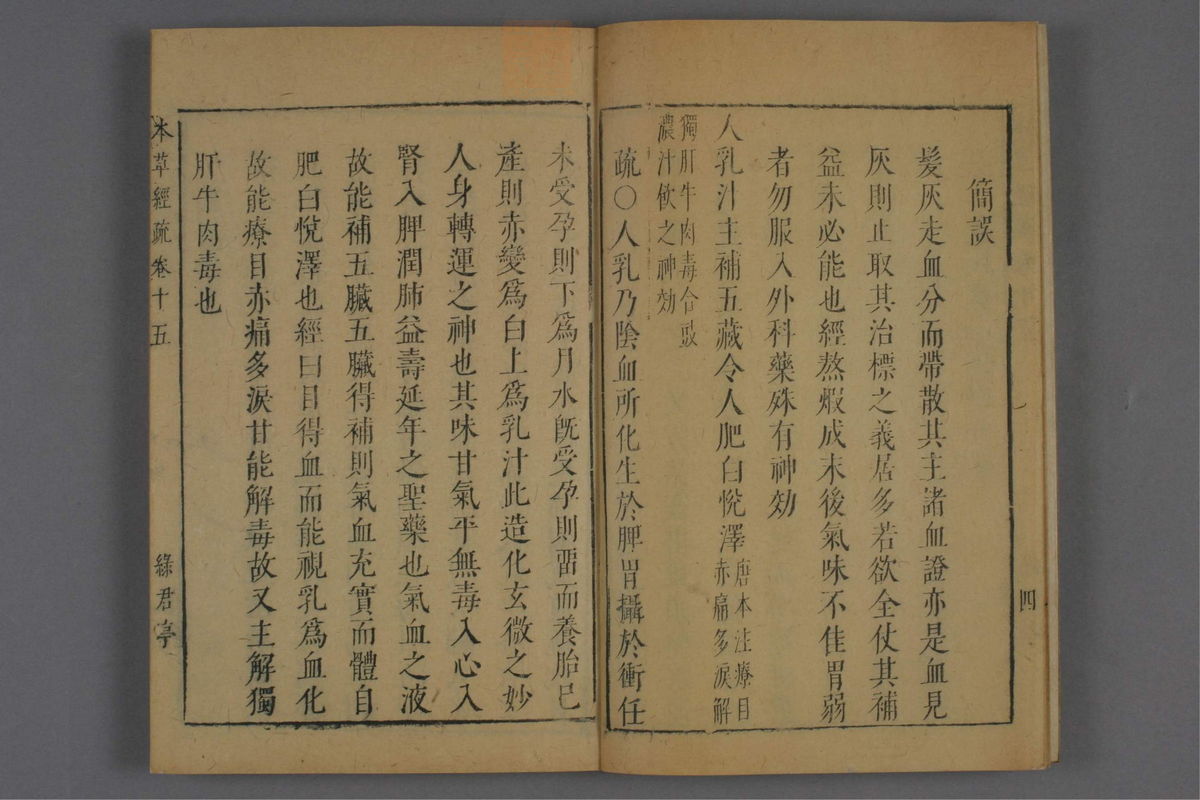 簡誤
髮灰走血分而帶散其主諸血證亦是血見
灰則止取其治標之義居多若欲全仗其補
益未必能也經熬煆成末後氣味不佳胃弱
者勿服入外科藥殊有神効
人乳汁主補五藏令人肥白悅澤
唐本注療目
赤痛多淚解
獨肝牛肉毒合豉
濃汁飲之神効
疏○人乳乃陰血所化生於脾胃攝於衝任
四
未受孕則下爲月水既受孕則畱而養胎已
產則赤變爲白上爲乳汁此造化玄微之妙
人身轉運之神也其味甘氣平無毒入心入
腎入脾潤肺益壽延年之聖藥也氣血之液
故能補五臟五臟得補則氣血充實而體自
肥白悅澤也經曰目得血而能視乳爲血化
故能療目赤痛多淚甘能解毒故又主解獨
肝牛肉毒也
本草經疏 卷十五
綠君亭